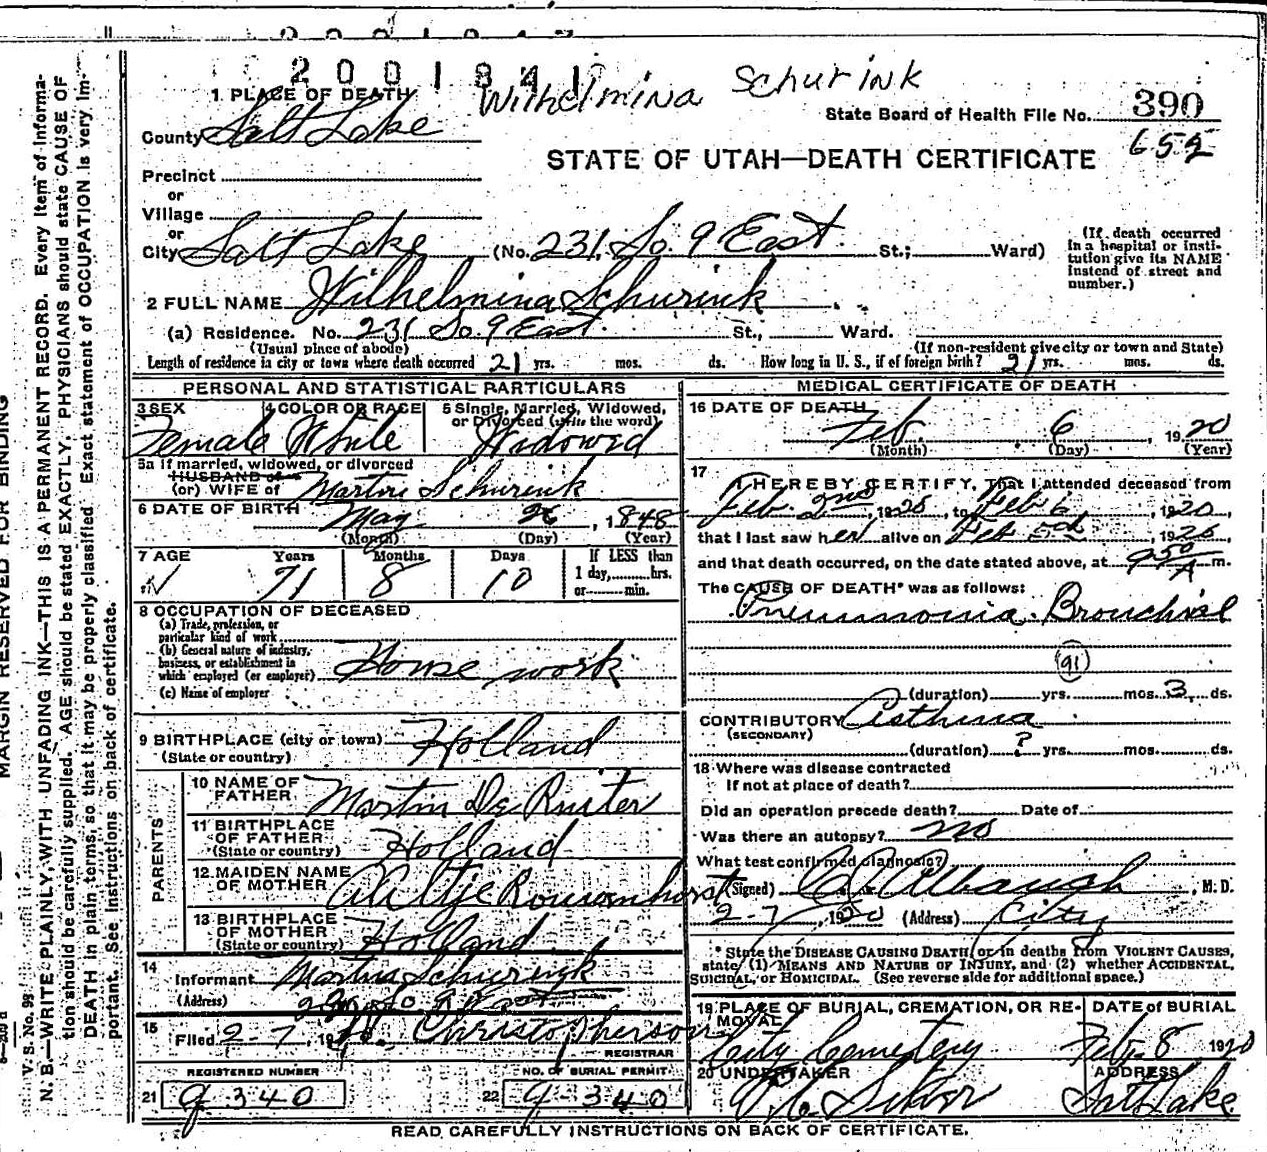 2001841
Wilhelmina Schurink
1 PLACE OF DEATH
State Board of Health File No. 390
County Salt Lake
652
STATE OF UTAH—DEATH CERTIFICATE
Precinct
or
Village
or
City Salt Lake (No. 231 So. 9 East St.; Ward)
(If death occurred in a hospital or institution give its NAME instead of street and number.)
2 FULL NAME Wilhelmina Schurink
(a) Residence. No. 231 So. 9 East St., Ward.
(Usual place of abode) (If non-resident give city or town and State)
Length of residence in city or town where death occurred 21 yrs. mos. ds. How long in U. S., if of foreign birth? 21 yrs. mos. ds.
PERSONAL AND STATISTICAL PARTICULARS
3 SEX 4 COLOR OR RACE 5 Single, Married, Widowed, or Divorced (write the word)
Female White Widowed
5a If married, widowed, or divorced
HUSBAND of
(or) WIFE of Martin Schurink
6 DATE OF BIRTH May 26, 1848
(Month) (Day) (Year)
7 AGE Years Months Days If LESS than
71 8 10 1 day, hrs.
or min.
8 OCCUPATION OF DECEASED
(a) Trade, profession, or
particular kind of work
(b) General nature of industry,
business, or establishment in
which employed (or employer) House work
(c) Name of employer
9 BIRTHPLACE (city or town) Holland
(State or country)
PARENTS
10 NAME OF FATHER Martin De Ruiter
11 BIRTHPLACE OF FATHER Holland
(State or country)
12 MAIDEN NAME OF MOTHER Rouwenhorst
13 BIRTHPLACE OF MOTHER Holland
(State or country)
14
Informant Martin Schurink
(Address)
15
Filed 2-7 19 Christopherson
REGISTRAR
REGISTERED NUMBER NO. OF BURIAL PERMIT
21 9340 22 9-340
MEDICAL CERTIFICATE OF DEATH
16 DATE OF DEATH
Feb. 6, 1920
(Month) (Day) (Year)
17
I HEREBY CERTIFY, That I attended deceased from
Feb. 2nd, 1920, to Feb 6, 1920,
that I last saw her alive on Feb 5th, 1920
and that death occurred, on the date stated above, at 950 A m.
The CAUSE OF DEATH* was as follows:
Pneumonia. Bronchial
91
(duration) yrs. mos. 3 ds.
CONTRIBUTORY Asthma
(SECONDARY)
(duration) ? yrs. mos. ds.
18 Where was disease contracted
If not at place of death?
Did an operation precede death? Date of
Was there an autopsy? no
What test confirmed diagnosis?
(Signed) , M. D.
2-7, 1920 (Address) City
* State the DISEASE CAUSING DEATH, or in deaths from VIOLENT CAUSES,
state (1) MEANS AND NATURE OF INJURY, and (2) whether ACCIDENTAL,
SUICIDAL, or HOMICIDAL. (See reverse side for additional space.)
19 PLACE OF BURIAL, CREMATION, OR REMOVAL DATE of BURIAL
City Cemetery Feb. 8 1920
20 UNDERTAKER ADDRESS
Salt Lake
READ CAREFULLY INSTRUCTIONS ON BACK OF CERTIFICATE.
MARGIN RESERVED FOR BINDING
V. S. No. 98
N. B.—WRITE PLAINLY, WITH UNFADING INK—THIS IS A PERMANENT RECORD. Every item of information
should be carefully supplied. AGE should be stated EXACTLY. PHYSICIANS should state CAUSE OF
DEATH in plain terms, so that it may be properly classified. Exact statement of OCCUPATION is very important.
See instructions on back of certificate.